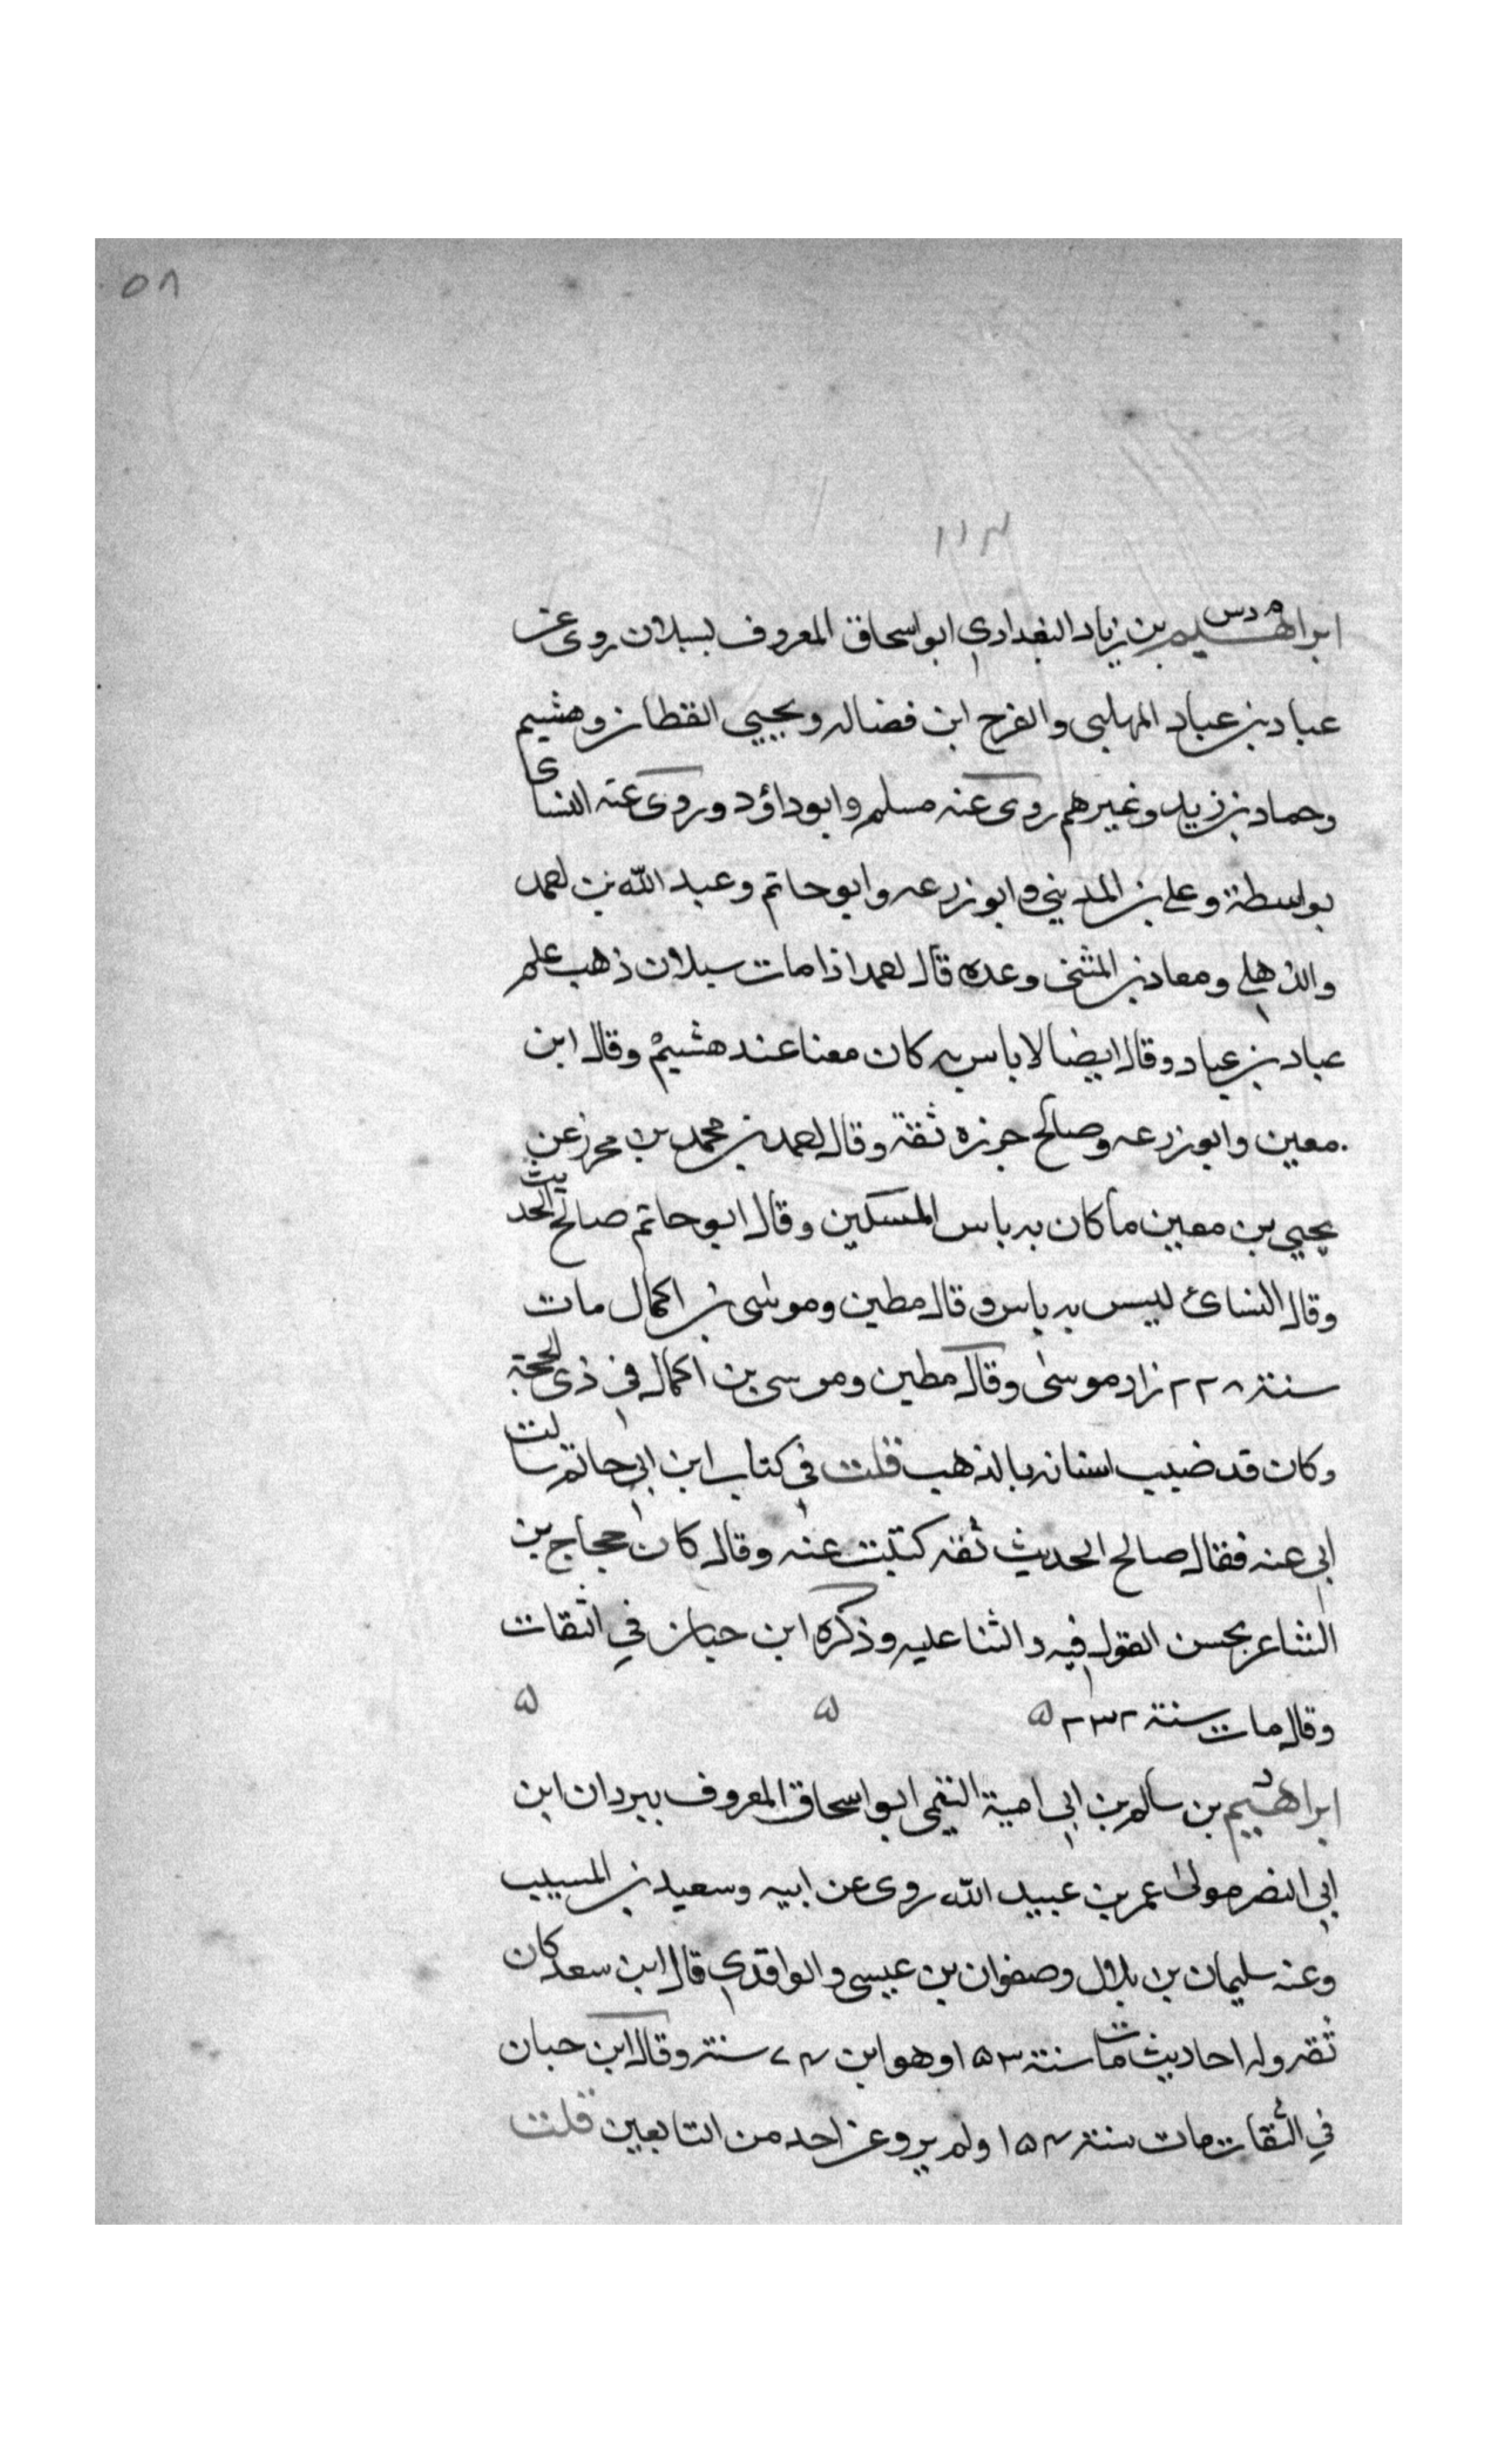 ٥٨
١١٣
ابراهيم م د س بن زياد البغدادي ابو اسحاق المعروف بسبلان روى عن
عباد بن عباد المهلبى والفرج ابن فضاله ويحيى القطان وهشيم
وحماد بن زيد وغيرهم روى عنه مسلم وابو داؤد وروى عنه النسائ
بواسطة وعلى بن المديني وابو زرعه وابو حاتم وعبد الله بن احمد
والذهلي ومعاذ بن المثنى وعده قال احمد اذا مات سبلان ذهب علم
عباد بن عباد وقال ايضا لا باس به كان معنا عند هشيم وقال ابن
معين وابو زرعه وصالح جزره ثقة وقال احمد بن محمد بن محرز عن
يحيى بن معين ما كان به باس المسكين وقال ابو حاتم صالح الحديث
وقال النسائ ليس به باس وقال مطين وموسى بن اكمال مات
سنة ٢٢٨ زاد موسى وقال مطين وموسى بن اكمال في ذى الحجة
وكان قد ضبب اسنانه بالذهب قلت في كتاب ابن ابي حاتم سالت
ابى عنه فقال صالح الحديث ثقه كتبت عنه وقال كان حجاج بن
الشاعر بحسن القول فيه والثنا عليه وذكره ابن حبان في الثقات
وقال مات سنة ٢٣٢ ۵ ۵ ۵
ابراهيم بن سالم بن ابي امية التيمى ابو اسحاق المعروف ببردان ابن
ابي النضر مولى عمر بن عبيد الله روى عن ابيه وسعيد بن المسيب
وعنه سليمان بن بلال وصفوان بن عيسى والواقدي قال ابن سعد كان
ثقه وله احاديث مات سنة ١٥٣ وهو ابن ٧٤ سنة وقال ابن حبان
في الثقات مات سنة ١٥٤ ولم يرو عن احد من التابعين قلت